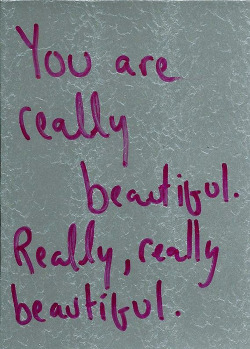 You are
really
beautiful.
Really, really
beautiful.